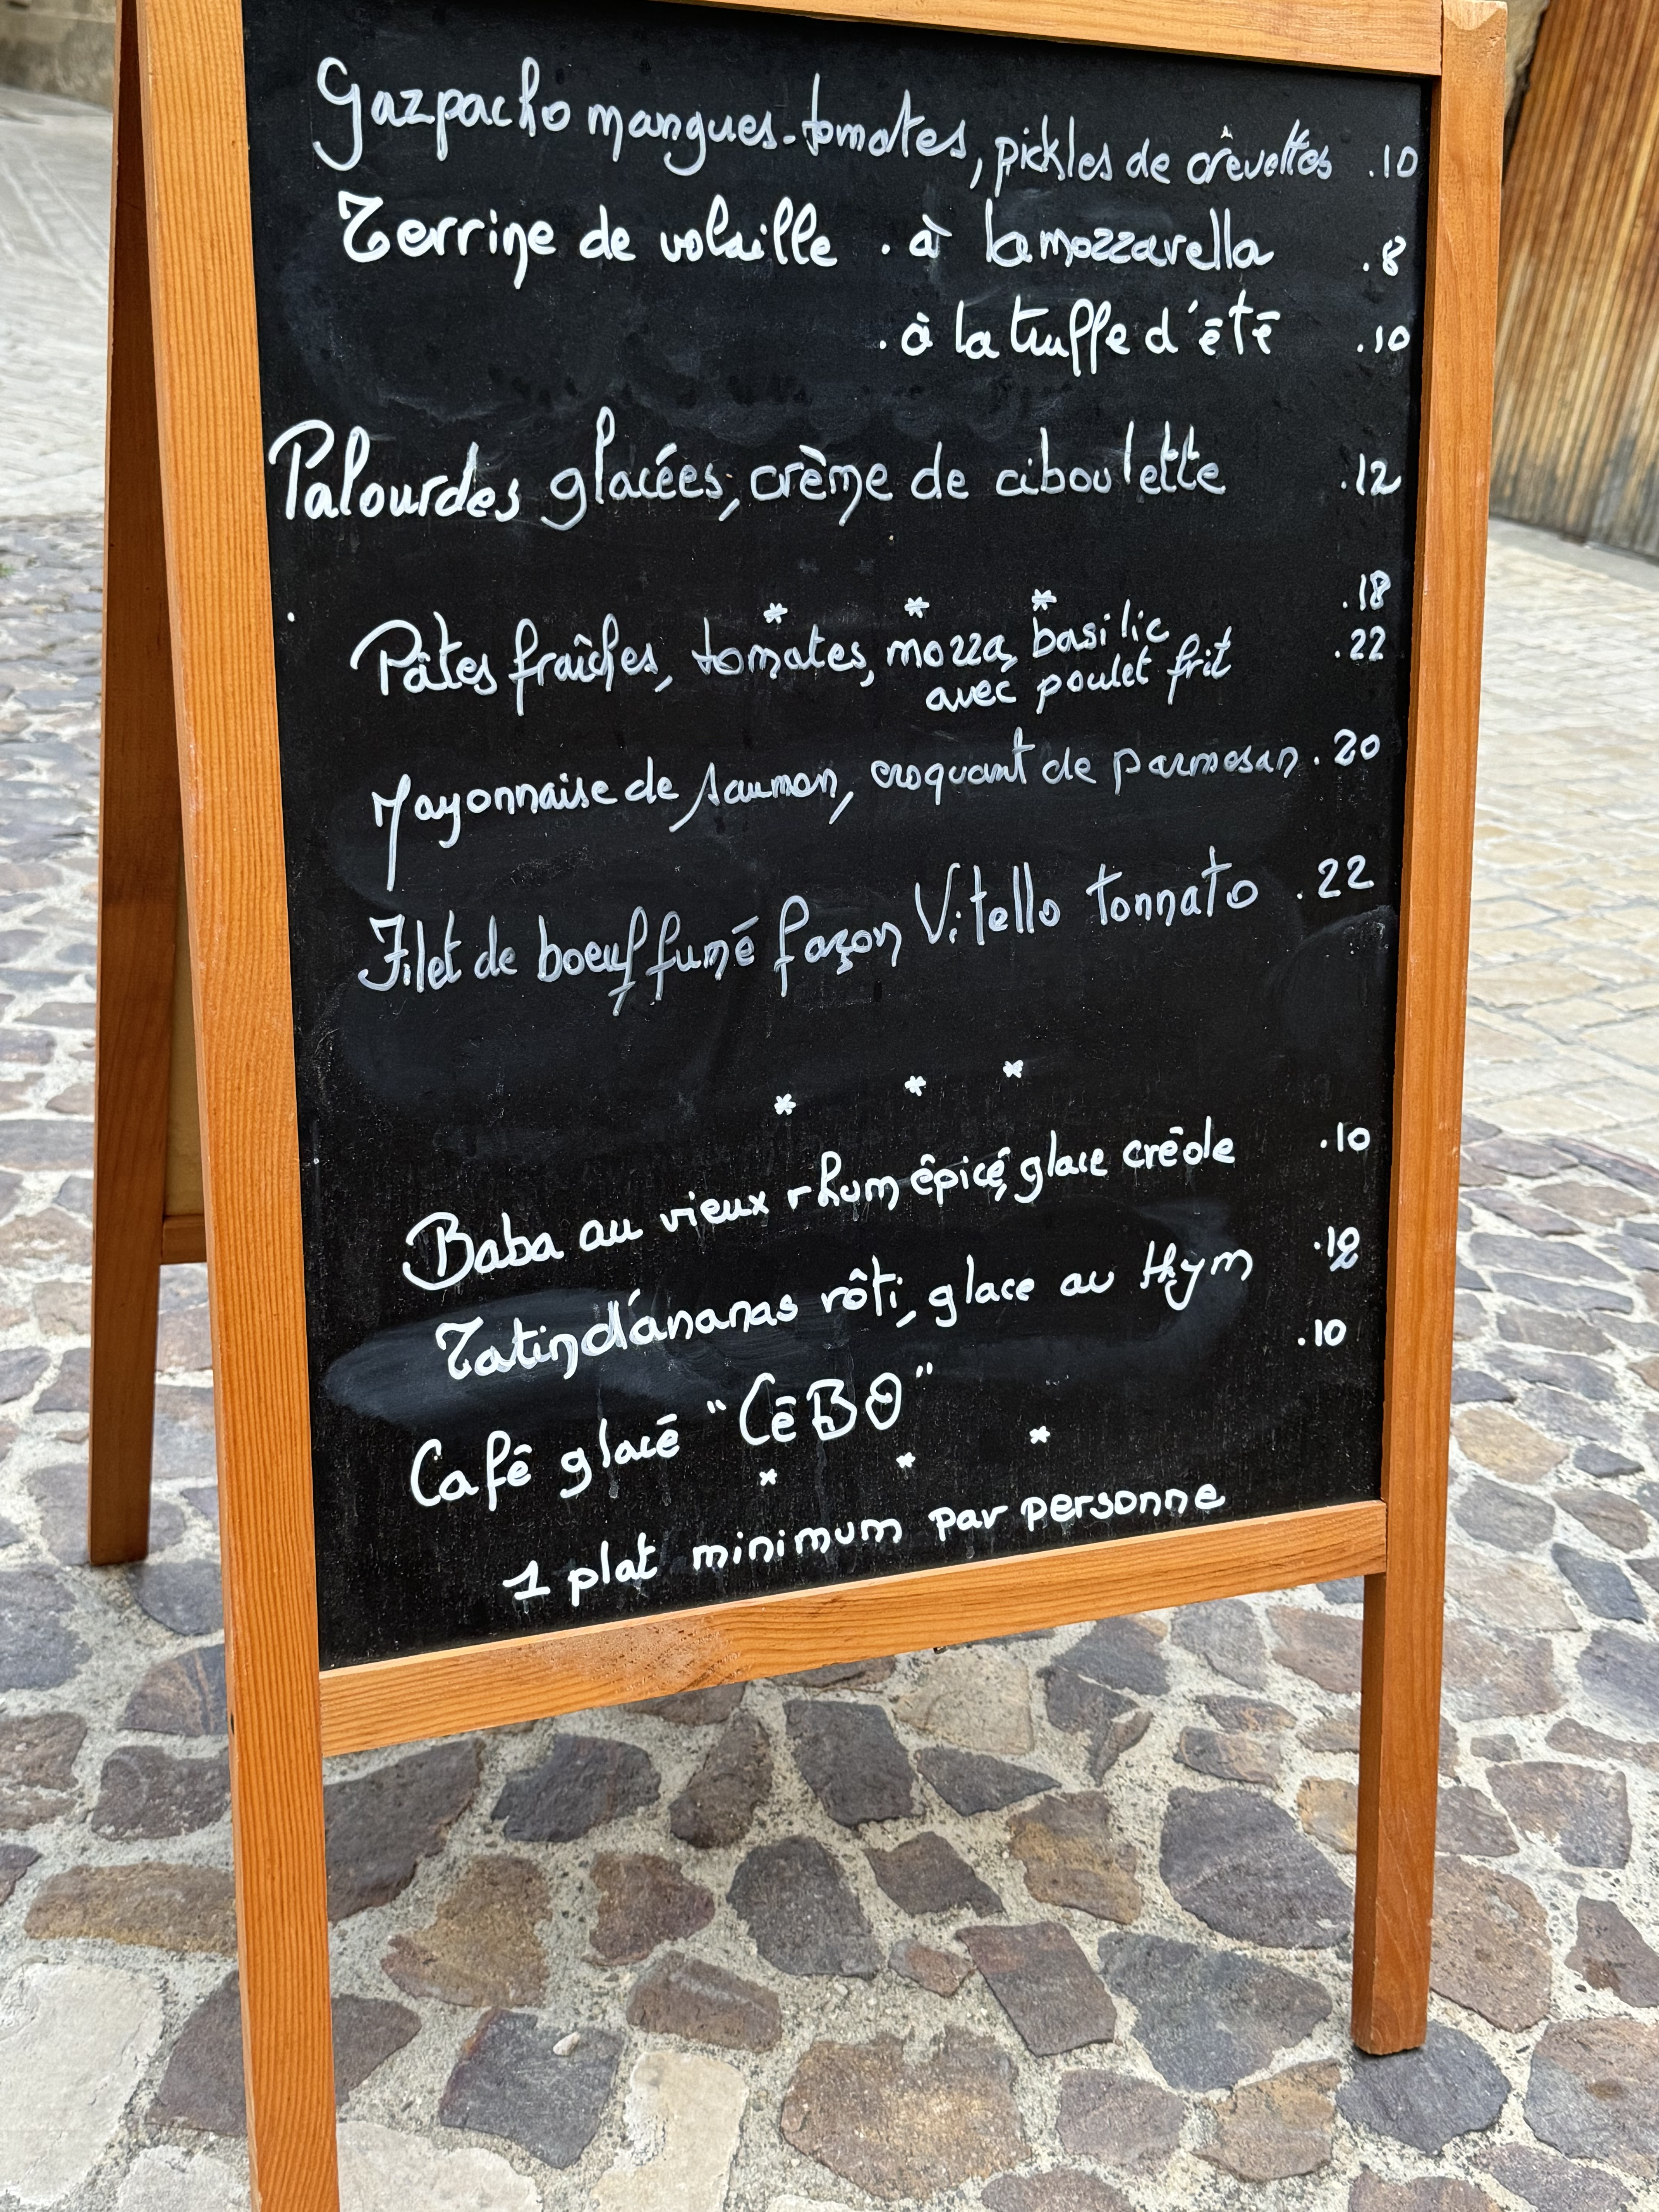 Gazpacho mangues-tomates, pickles de crevettes .10
Terrine de volaille . à la mozzarella .8
. à la truffe d'été .10
Palourdes glacées, crème de ciboulette .12
* * *
.18
Pâtes fraîches, tomates, mozza, basilic
avec poulet frit .22
Mayonnaise de saumon, croquant de parmesan .20
Filet de boeuf fumé façon Vitello tonnato .22
* * *
Baba au vieux rhum épicé, glace créole .10
Tatin d'ananas rôti, glace au thym
Café glacé "CéBO" .10
* * *
1 plat minimum par personne